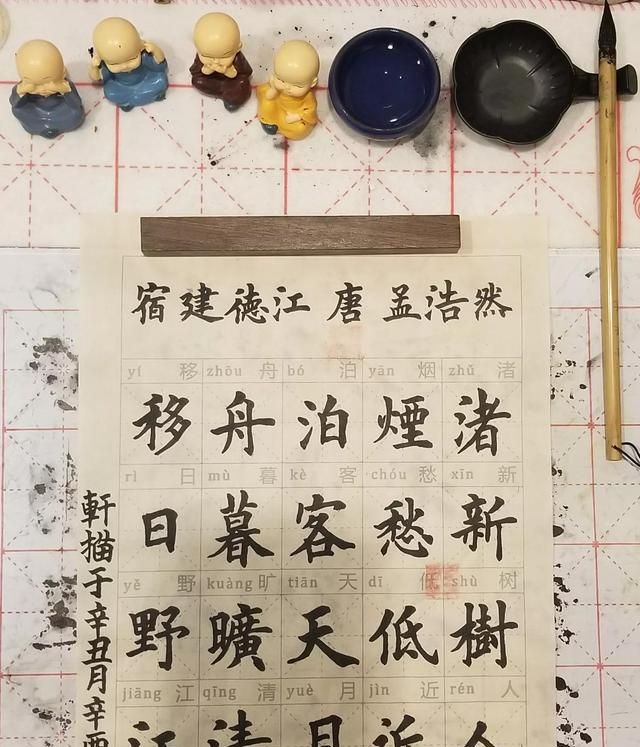 宿建德江 唐 孟浩然
yí 移 zhōu 舟 bó 泊 yān 烟 zhǔ 渚
移舟泊煙渚
rì 日 mù 暮 kè 客 chóu 愁 xīn 新
日暮客愁新
yě 野 kuàng 旷 tiān 天 dī 低 shù 树
野曠天低樹
jiāng 江 qīng 清 yuè 月 jìn 近 rén 人
江清月近人
軒描于辛丑月辛酉